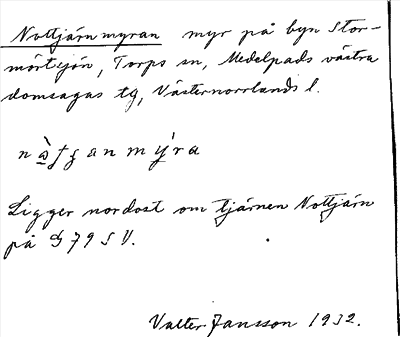 Nottjärnmyran myr på byn Stor-
mörtsjön, Torps sn, Medelpads västra
domsagas tg, Västernorrlands l.
Ligger nordost om tjärnen Nottjärn
på S 79 SV.
Valter Jansson 1932.